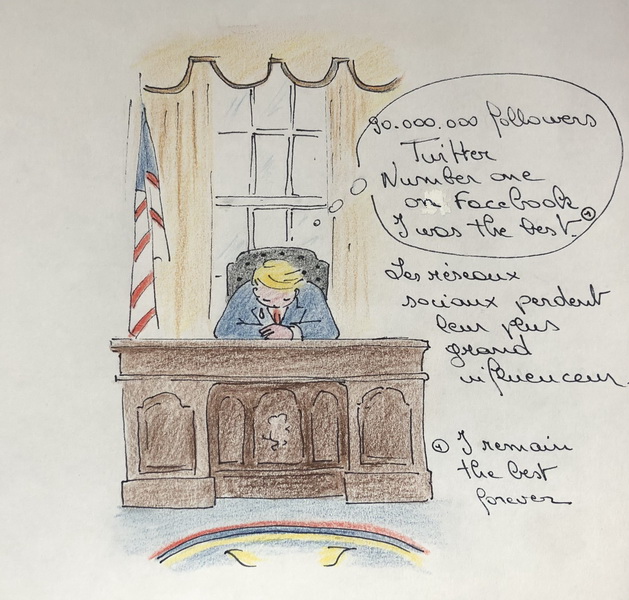 90.000.000 followers
Twitter
Number one
on Facebook
I was the best. ⊕
Les réseaux
sociaux perdent
leur plus
grand
influenceur.
⊕ I remain
the best
forever